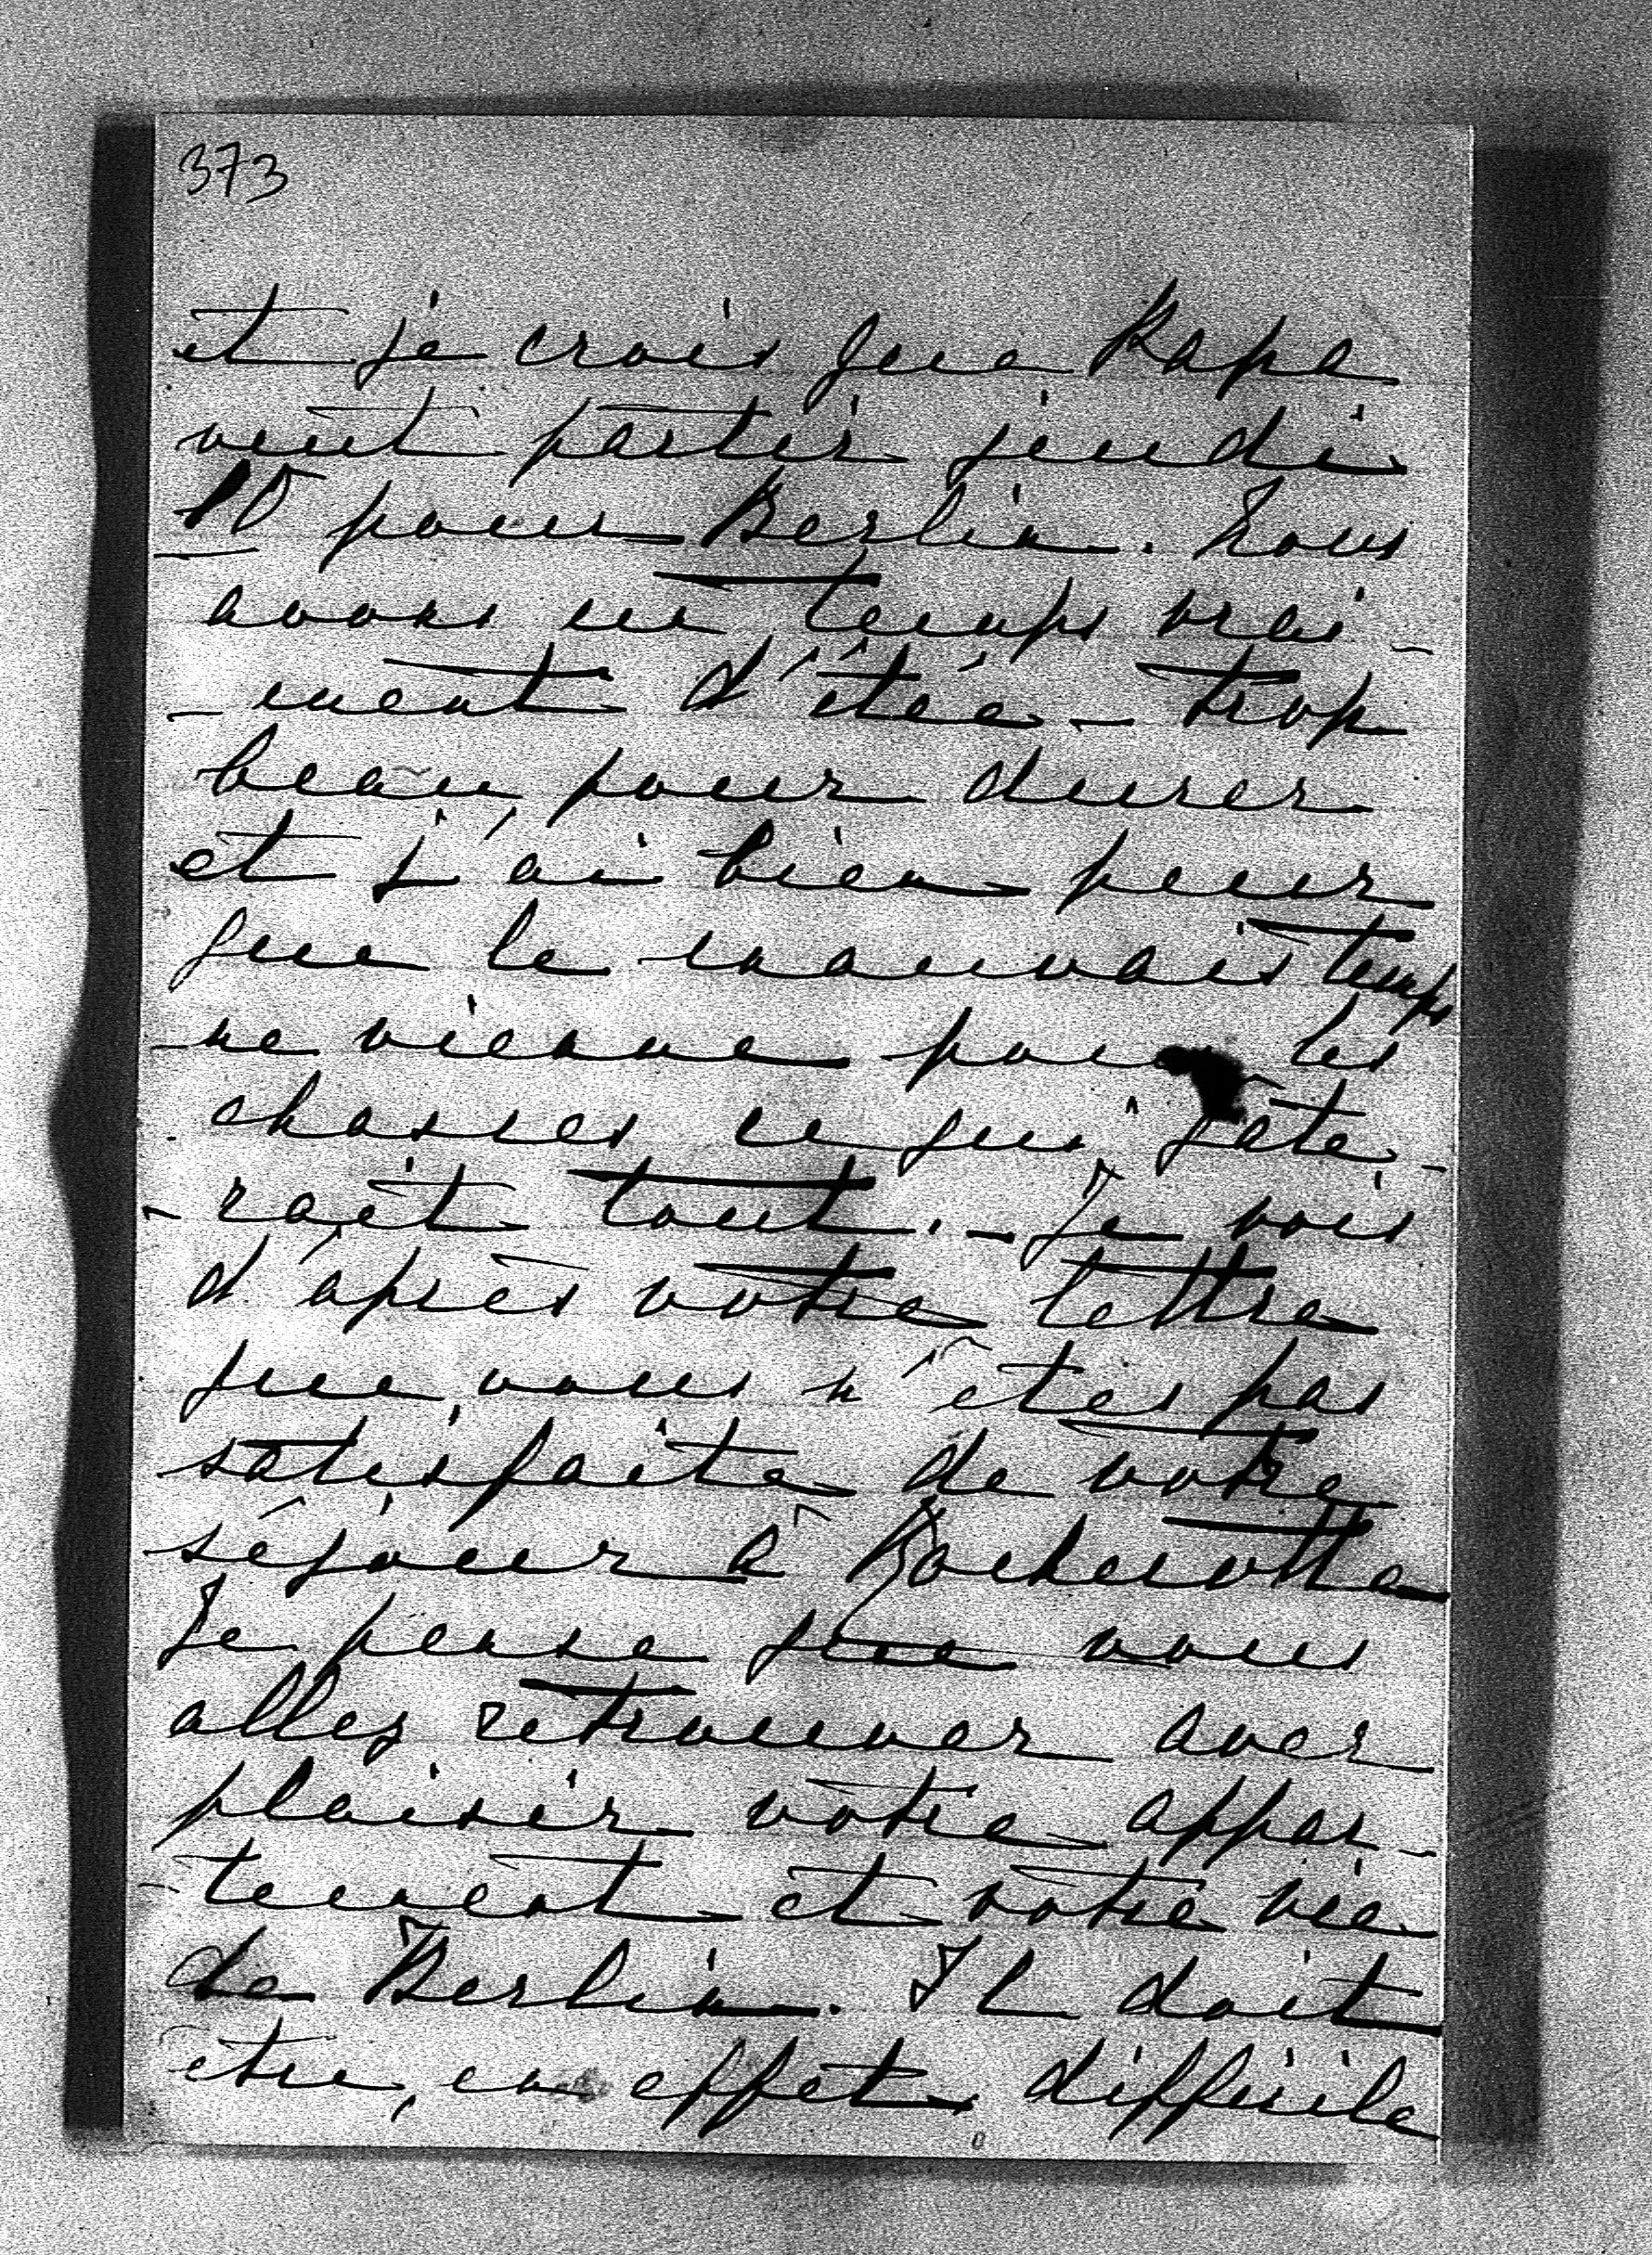 373
et je crois que Papa
veut partir jeudi
10 pour Berlin. Nous
avons un temps vrai-
-ment d'été - trop
beau pour durer
et j'ai bien peur
que le mauvais temps
ne vienne pour les
chasses ce qui gâte-
-rait tout. - Je vois
d'après votre lettre
que vous n'êtes pas
satisfaite de votre
séjour à Rochecotte
Je pense que vous
allez retrouver avec
plaisir votre appar-
-tement et votre vie
de Berlin. Il doit
être, en effet, difficile